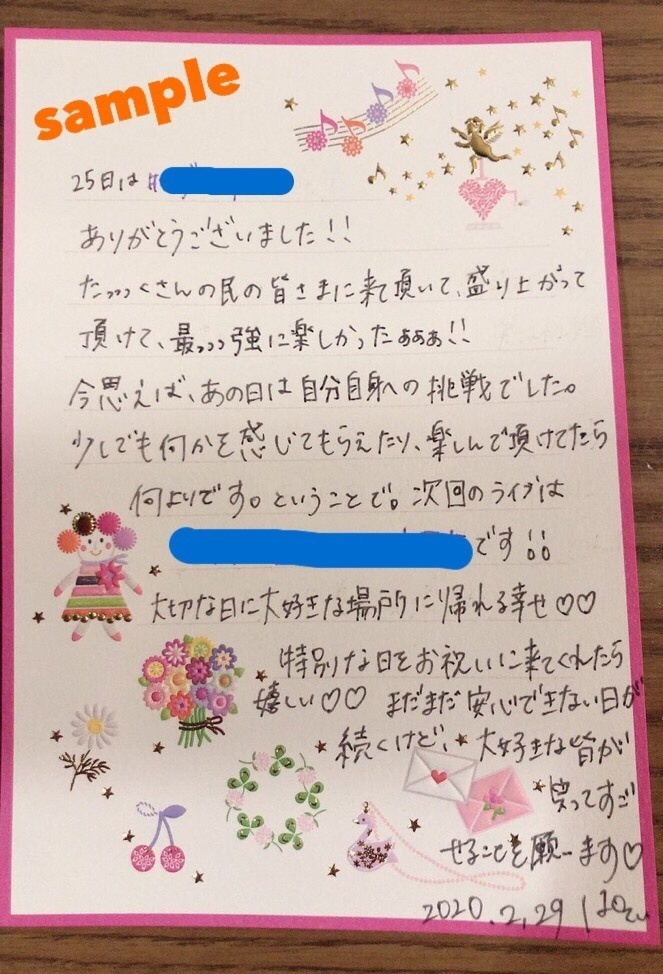 sample
25日は
ありがとうございました!!
たっっっくさんの民の皆さまに来て頂いて、盛り上がって
頂けて、最っっっ強に楽しかったぁぁぁ!!
今思えば、あの日は自分自身への挑戦でした。
少しでも何かを感じてもらえたり、楽しんで頂けてたら
何よりです。ということで。次回のライブは
です!!
大切な日に大好きな場所に帰れる幸せ♡♡
特別な日をお祝いに来てくれたら
嬉しい♡♡ まだまだ安心できない日が
続くけど、大好きな皆が
笑ってすご
せることを願います♡
2020.2.29